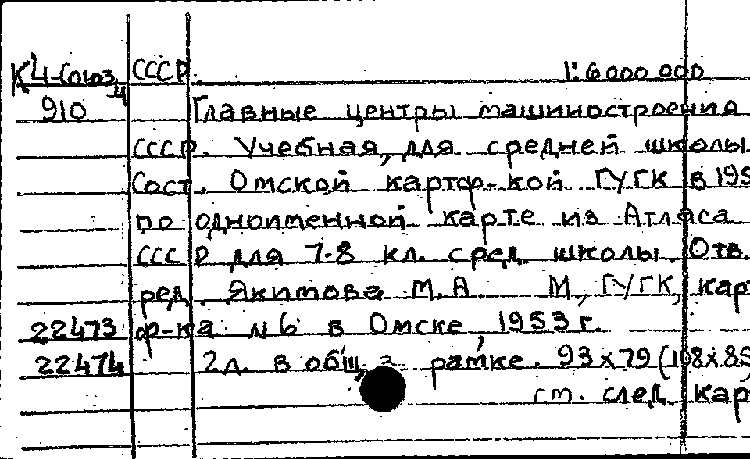 К4-Союз СССР. 1:6000 000
4
910 Главные центры машиностроения
СССР. Учебная, для средней школы
Сост. Омской картф-кой ГУГК в 195
по одноименной карте из Атласа
СССР для 7-8 кл. сред. школы. Отв.
ред. Якимова М.А. М, ГУГК, кар
22473 ф-ка №6 в Омске, 1953 г.
22474 2л. в общ. рамке. 93х79 (108х85
см. след кар